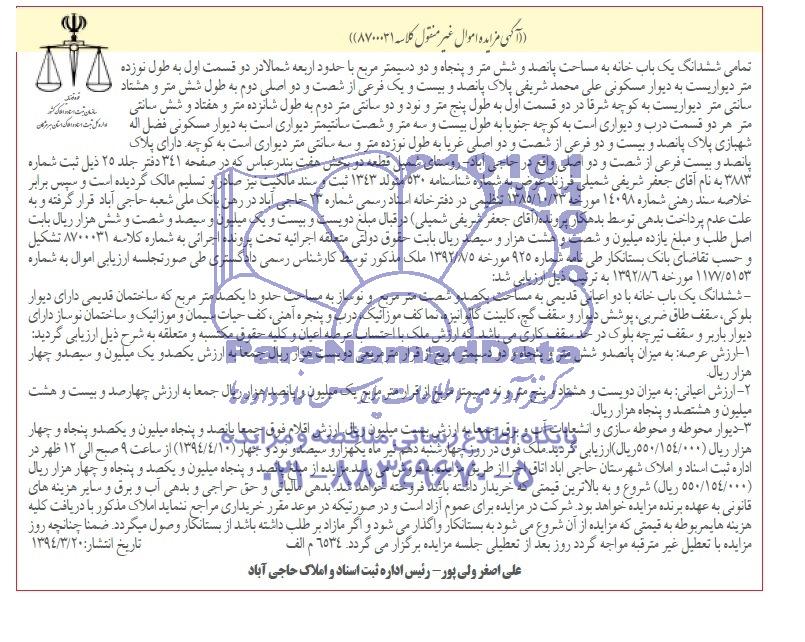 ((آگهی مزایده اموال غیر منقول کلاسه ۸۷۰۰۰۳۱))
قوه قضائیه
سازمان ثبت اسناد و املاک کشور
اداره کل ثبت اسناد و املاک استان هرمزگان
تمامی ششدانگ یک باب خانه به مساحت پانصد و شش متر و پنجاه و دو دسیمتر مربع با حدود اربعه شمالادر دو قسمت اول به طول نوزده
متر دیواریست به دیوار مسکونی علی محمد شریفی پلاک پانصد و بیست و یک فرعی از شصت و دو اصلی دوم به طول شش متر و هشتاد
سانتی متر دیواریست به کوچه شرقا در دو قسمت اول به طول پنج متر و نود و دو سانتی متر دوم به طول شانزده متر و هفتاد و شش سانتی
متر هر دو قسمت درب و دیواری است به کوچه جنوبا به طول بیست و سه متر و شصت سانتیمتر دیواری است به دیوار مسکونی فضل اله
شهبازی پلاک پانصد و بیست و دو فرعی از شصت و دو اصلی غربا به طول نوزده متر و سه سانتی متر دیواری است به کوچه. دارای پلاک
پانصد و بیست فرعی از شصت و دو اصلی واقع در حاجی آباد- روستای شمیل قطعه دو بخش هفت بندرعباس که در صفحه ۳۴۱ دفتر جلد ۲۵ ذیل ثبت شماره
۳۸۸۳ به نام آقای جعفر شریفی شمیلی فرزند عوض به شماره شناسنامه ۵۳۰ متولد ۱۳۴۳ ثبت و سند مالکیت نیز صادر و تسلیم مالک گردیده است و سپس برابر
خلاصه سند رهنی شماره ۱۴۰۹۸ مورخه ۱۳۸۵/۱۰/۲۳ تنظیمی در دفترخانه اسناد رسمی شماره ۲۳ حاجی آباد در رهن بانک ملی شعبه حاجی آباد قرار گرفته و به
علت عدم پرداخت بدهی توسط بدهکار پرونده(آقای جعفر شریفی شمیلی) در قبال مبلغ دویست و بیست و یک میلیون و سیصد و شصت و شش هزار ریال بابت
اصل طلب و مبلغ یازده میلیون و شصت و هشت هزار و سیصد ریال بابت حقوق دولتی متعلقه اجرائیه تحت پرونده اجرائی به شماره کلاسه ۸۷۰۰۰۳۱ تشکیل
و حسب تقاضای بانک بستانکار طی نامه شماره ۹۲۵ مورخه ۱۳۹۲/۷/۵ ملک مذکور توسط کارشناس رسمی دادگستری طی صورتجلسه ارزیابی اموال به شماره
۱۱۷۷/۵۱۵۳ مورخه ۱۳۹۲/۸/۶ به ترتیب ذیل ارزیابی شد:
- ششدانگ یک باب خانه با دو اعیانی قدیمی به مساحت یکصدو شصت متر مربع و نوساز به مساحت حدو دا یکصد متر مربع که ساختمان قدیمی دارای دیوار
بلوکی، سقف طاق ضربی، پوشش دیوار و سقف گچ، کابینت گالوانیزه، نما کف موزائیک، درب و پنجره آهنی، کف حیاط سیمان و موزائیک و ساختمان نوساز دارای
دیوار باربر و سقف تیرچه بلوک در حد سقف کاری می باشد. که ارزش ملک با احتساب عرصه اعیان و کلیه حقوق مکتسبه و متعلقه به شرح ذیل ارزیابی گردید:
۱-ارزش عرصه: به میزان پانصدو شش متر و پنجاه و دو دسیمتر مربع از قرار متر مربعی دویست هزار ریال جمعا به ارزش یکصدو یک میلیون و سیصدو چهار
هزار ریال.
۲- ارزش اعیانی: به میزان دویست و هشتاد و پنج متر و نه دسیمتر مربع از قرار متر مربع یک میلیون و پانصد هزار ریال جمعا به ارزش چهارصد و بیست و هشت
میلیون و هشتصد و پنجاه هزار ریال.
۳-دیوار محوطه و محوطه سازی و انشعابات آب و برق جمعا به ارزش بیست میلیون ریال. ارزش اقلام فوق جمعا پانصد و پنجاه میلیون و یکصدو پنجاه و چهار
هزار ریال (۵۵۰/۱۵۴/۰۰۰ریال)ارزیابی گردید.ملک فوق در روز چهارشنبه دهم تیر ماه یکهزارو سیصدو نود و چهار (۱۳۹۴/۴/۱۰) از ساعت ۹ صبح الی ۱۲ ظهر در
اداره ثبت اسناد و املاک شهرستان حاجی آباد اتاق اجرا از طریق مزایده به فروش می رسد. مزایده از مبلغ پانصد و پنجاه میلیون و یکصد و پنجاه و چهار هزار ریال
(۵۵۰/۱۵۴/۰۰۰ ریال) شروع و به بالاترین قیمتی که خریدار داشته باشد فروخته خواهد شد. بدهی مالیاتی و حق حراجی و بدهی آب و برق و سایر هزینه های
قانونی به عهده برنده مزایده خواهد بود. شرکت در مزایده برای عموم آزاد است و در صورتیکه در موعد مقرر خریداری مراجع ننماید املاک مذکور با دریافت کلیه
هزینه هایمربوطه به قیمتی که مزایده از آن شروع می شود به بستانکار واگذار می شود و اگر مازاد بر طلب داشته باشد از بستانکار وصول میگردد. ضمنا چنانچه روز
مزایده با تعطیل غیر مترقبه مواجه گردد روز بعد از تعطیلی جلسه مزایده برگزار می گردد. ۶۵۳۴ م الف تاریخ انتشار:۱۳۹۴/۳/۲۰
علی اصغر ولی پور- رئیس اداره ثبت اسناد و املاک حاجی آباد
ParsNamadData
مرکز فن آوری اطلاعات پارس نماد داده ها
پایگاه اطلاع رسانی مناقصه و مزایده
۰۲۱-۸۸۳۴۹۶۷۰-۵